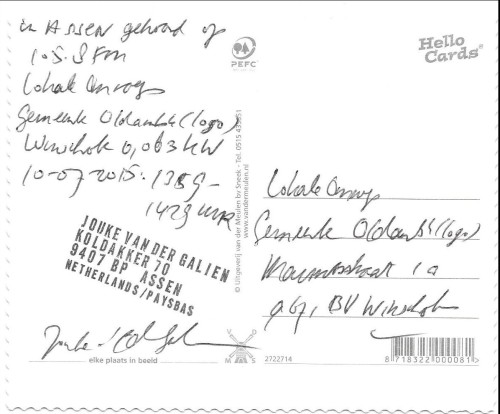 in ASSEN gehoord op
105.3 FM
Lokale Omroep
Gemeente Oldambt (logo)
Winschoten 0,063 kW
10-07-2015: 1359-
1423 uur
JOUKE VAN DER GALIEN
KOLDAKKER 70
9407 BP ASSEN
NETHERLANDS/PAYSBAS
elke plaats in beeld
PEFC
© Uitgeverij van der Meulen bv Sneek - Tel. 0515
www.vandermeulen.nl
Hello
Cards®
Lokale Omroep
Gemeente Oldambt (logo)
1a
BV Winschoten
V M S
2722714
8 718322 000081 >